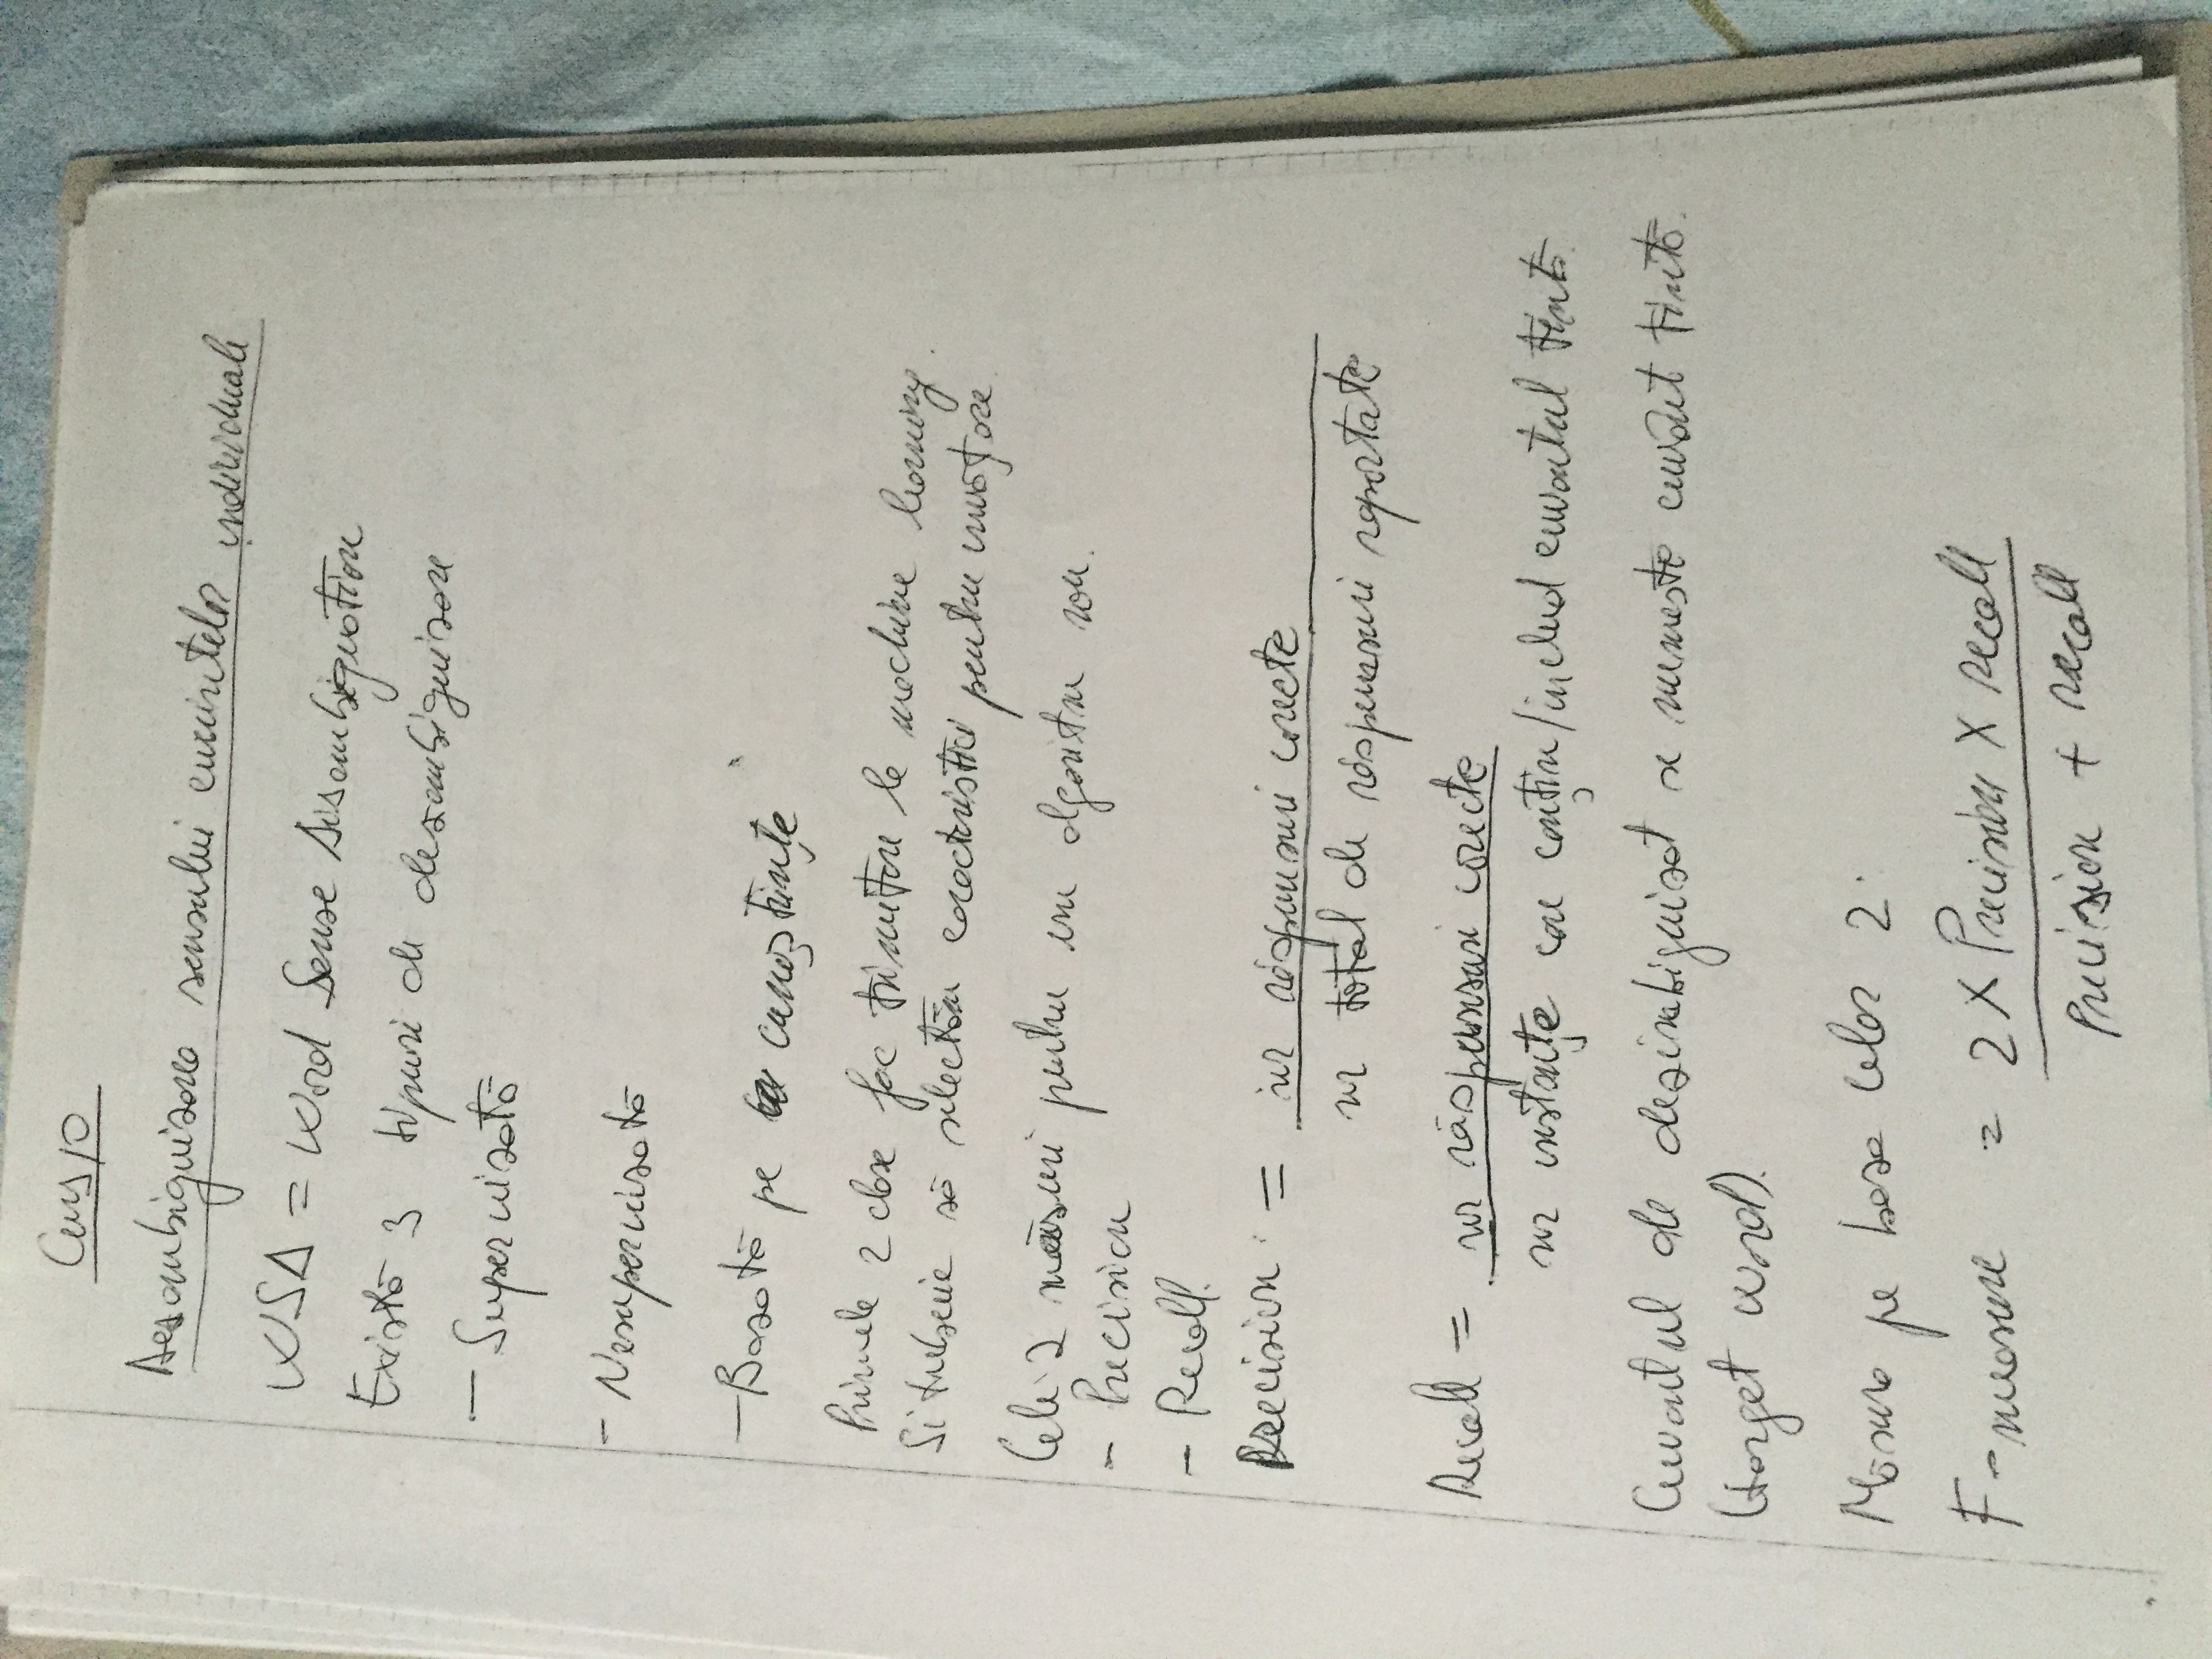 Curs 10
Desambiguizarea sensului cuvintelor individuale
WSD = Word Sense Disambiguation
Există 3 tipuri de dezambiguizare
- Supervizată
- Nesupervizată
- Bazată pe cunoștiințe
Primele 2 clase fac trimitere la machine learning.
Si trebuie să selectăm caracteristici pentru invățare.
Cele 2 măsuri pentru un algoritm
- Precision
- Recall.
Precision = nr răspunsuri corecte
nr total de răspunsuri raportate
Recall = nr răspunsuri corecte
nr instanțe care conțin/includ cuvantul tintă.
Cuvantul de dezimbiguizat se numeste cuvânt tintă.
(target word).
Măsura pe baza celor 2.
F-measure = 2 X Precision X recall
Precision + recall